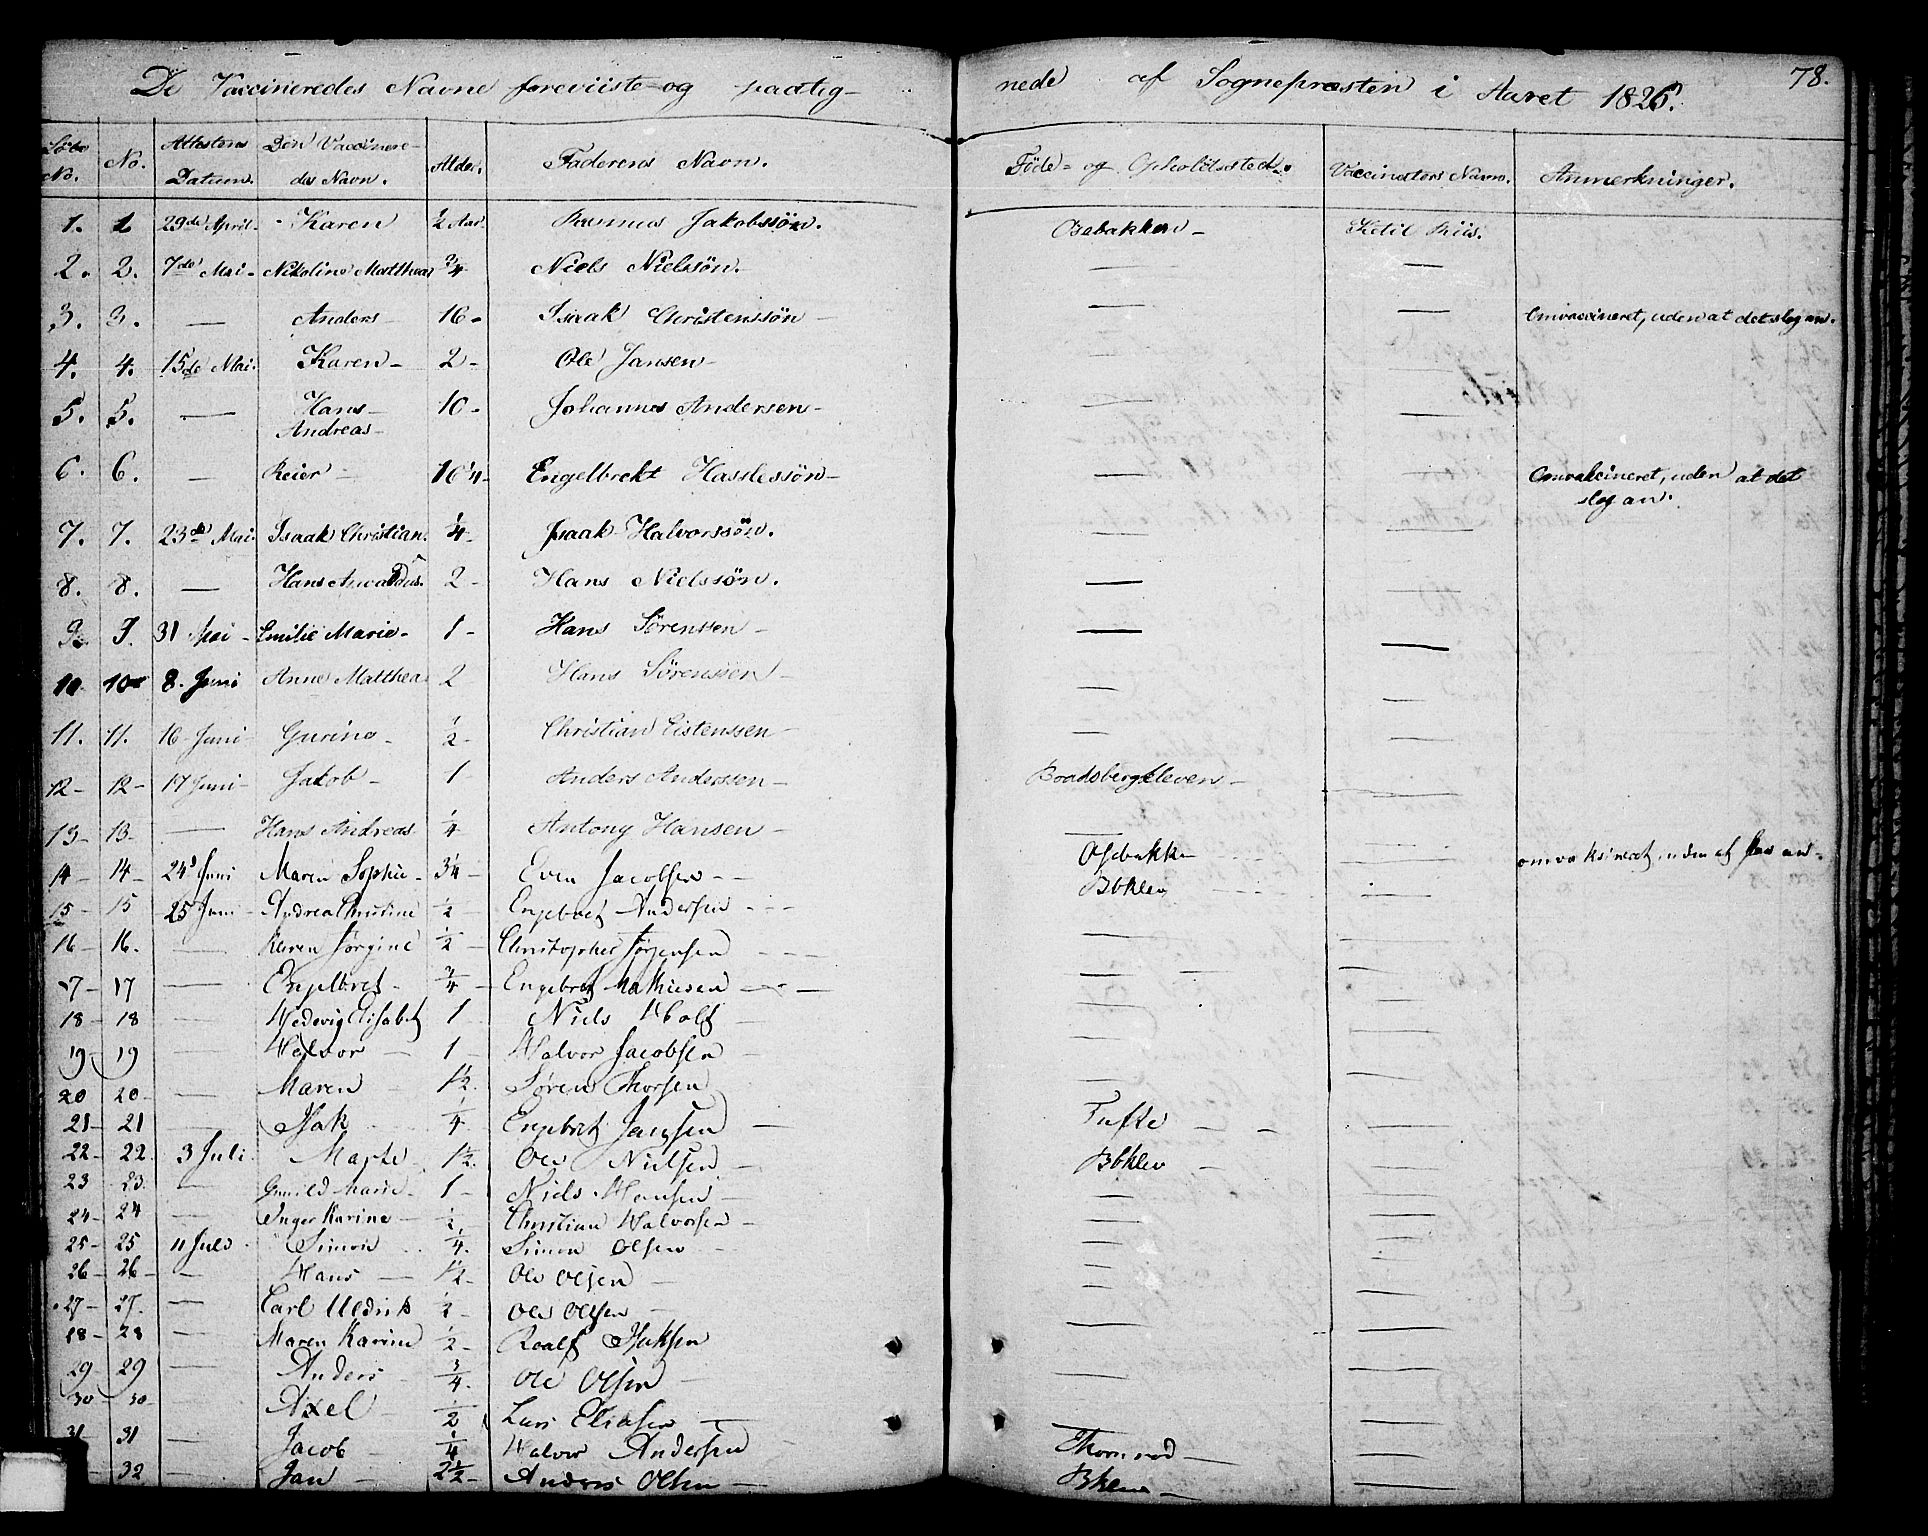 De Vaccineredes Navne foreviiste og paateg- nede af Sognepræsten i Aaret 1826. 78.
Løbe No. No. Attestens Datum. Den Vaccinere- des Navn. Alder. Faderens Navn. Føde- og Opholdssted. Vaccinators Navn. Anmerkninger.
1. 1 29de April. Karen ½ Aar. Rasmus Jakobssøn. Ketil Riis.
2. 2. 7de Mai - Nikoline Matthea ¾ Niels Nielssøn. — —
3. 3. — Anders 16 - Isaak Christenssøn — — Omvaccineret, uden at det slog an.
4. 4. 15de Mai. Karen - 2 - Ole Jansen - — —
5. 5. — Hans Andreas - 10 - Johannes Andersen - — —
6. 6. — Reier - 10¼ - Engelbrekt - — — Omvakcineret, uden at det slog an.
7. 7. 23de Mai. Isaak Christian. ¼ - Isaak Halvorssøn. — —
8. 8. — Hans 2 - Hans Nielssøn. — —
9. 9. 31 Mai - Emilie Marie - 1 - Hans Sørenssen - — —
10. 10 8. Juni Anne Matthea 2 Hans Sørenssen - — —
11. 11. 16 Juni - Gurine - ½ - Christian Eistenssen - — —
12 - 12 - 17 Juni - Jakob - 1 - Anders Anderssen - —
13 - 13 - — Hans Andreas ¼ Antony Hansen - — —
14 - 14 - 24 Juni Maren Sophie - 3¼ - Even Jacobsen - - omvaksineret uden at
15 - 15 25 Juni - Andrea Christine ½ - Engebret Andersen - - - Bbklev
16 - 16. — Karen Jørgine ½ - Christopher Jørgensen - - - — —
17 - 17 — Engelbret - ¾ - Engebret Mathiesen - - - — —
18 - 18 — Hedevig Elisabet 1 Niels Holt - — —
19 19 — Halvor - 1 - Halvor Jacobsen - — —
20 20 - — Maren - 1½. Søren Thorsen — —
21 - 21 — Isak ¼ Engebret Jansen - Tufte - - —
22 - 22. 3 Juli. Marte - 1½. Ole Nielsen - Bbklev - —
23 23. — Gunild Marie - 1 - Niels Hansen - — —
24 - 24 — Inger Karine - ½. Christian Halvorsen - — —
25 - 25 11 Juli - Simon ¼. Simon Olsen - — —
26 - 26 - — Hans - 1½ - Ole Olsen - — —
27 - 27. — Carl Uldrik ½ - Ole Olsen - — —
28 - 28 — Maren Karine ½ - Roalf Isaksen — —
29 29 — Anders ¾. Ole Olsen - — —
30 - 30 - — Axel - ½ Lars Eliasen - — —
31 31 — Jacob - ¼ Halvor Andersen - —
32 — Jan - 2½ - Anders Olsen - —